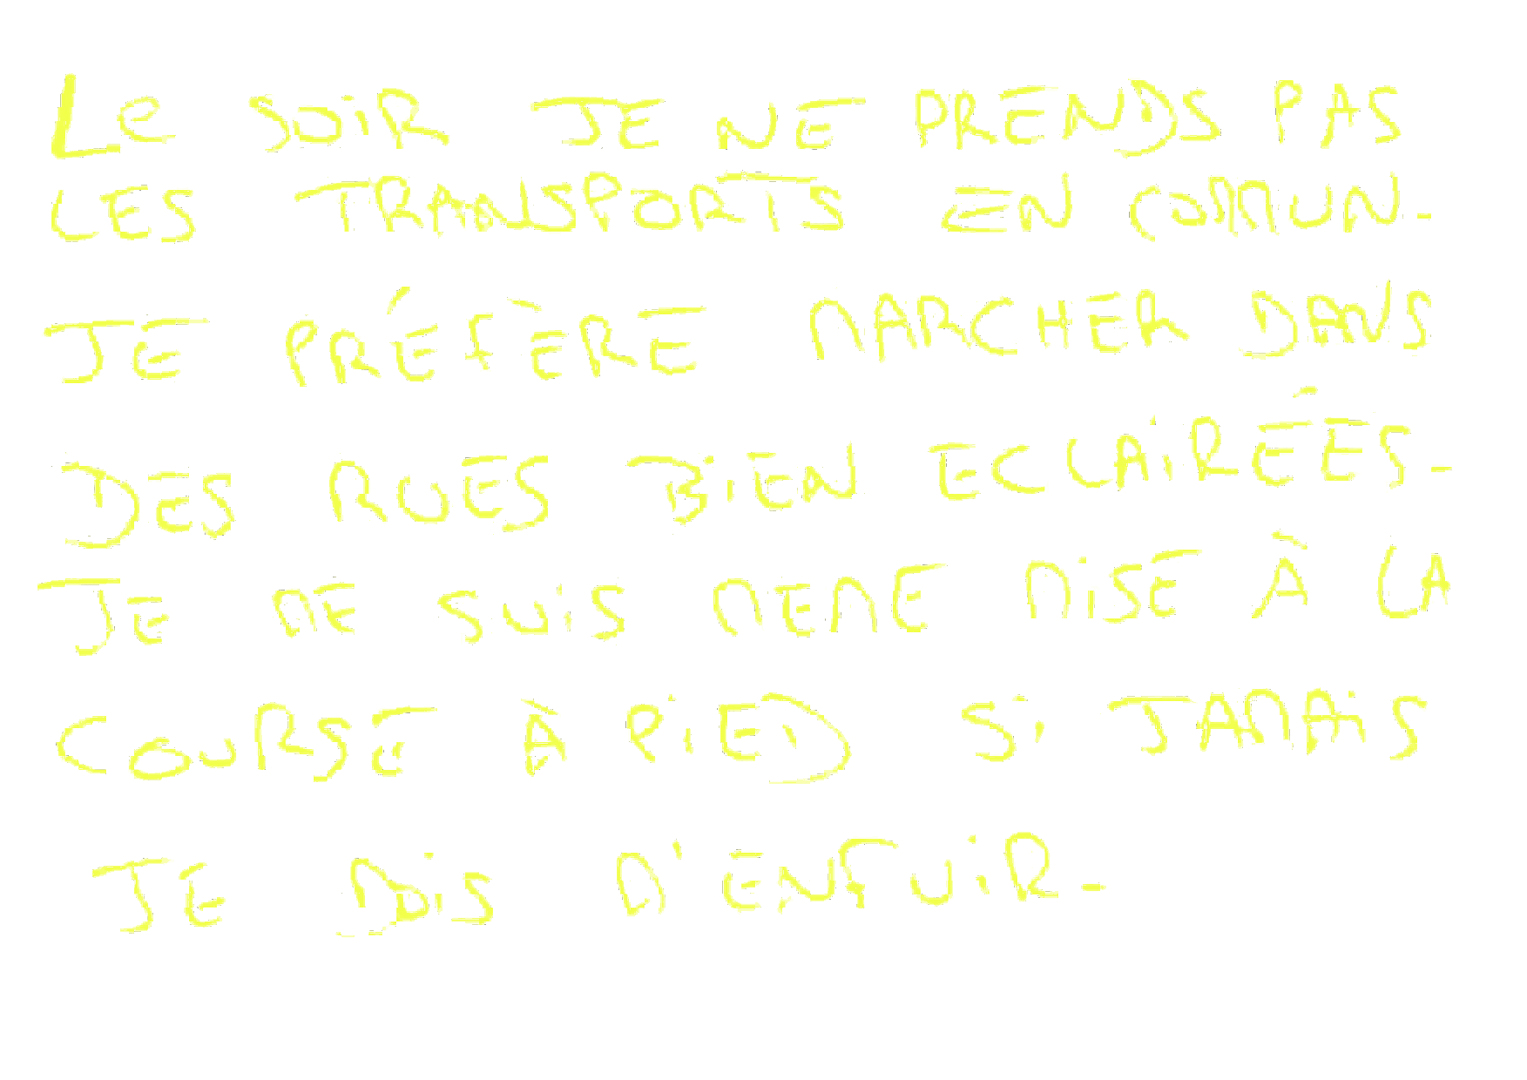 Le SOIR JE NE PRENDS PAS
LES TRANSPORTS EN COMMUN.
JE PRÉFÈRE MARCHER DANS
DES RUES BIEN ECLAIRÉES.
JE ME SUIS MEME MISE À LA
COURSE À PIED SI JAMAIS
JE DOIS M'ENFUIR.